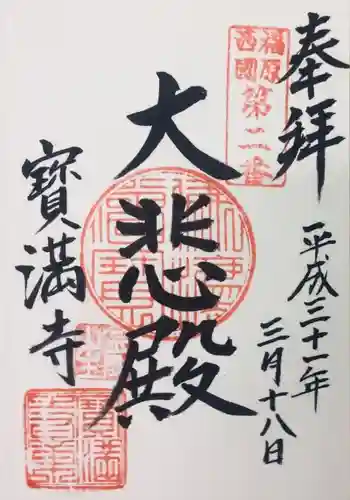 奉拝
平成三十一年
三月十八日
福原
西國
第二番
大悲殿
寶満寺